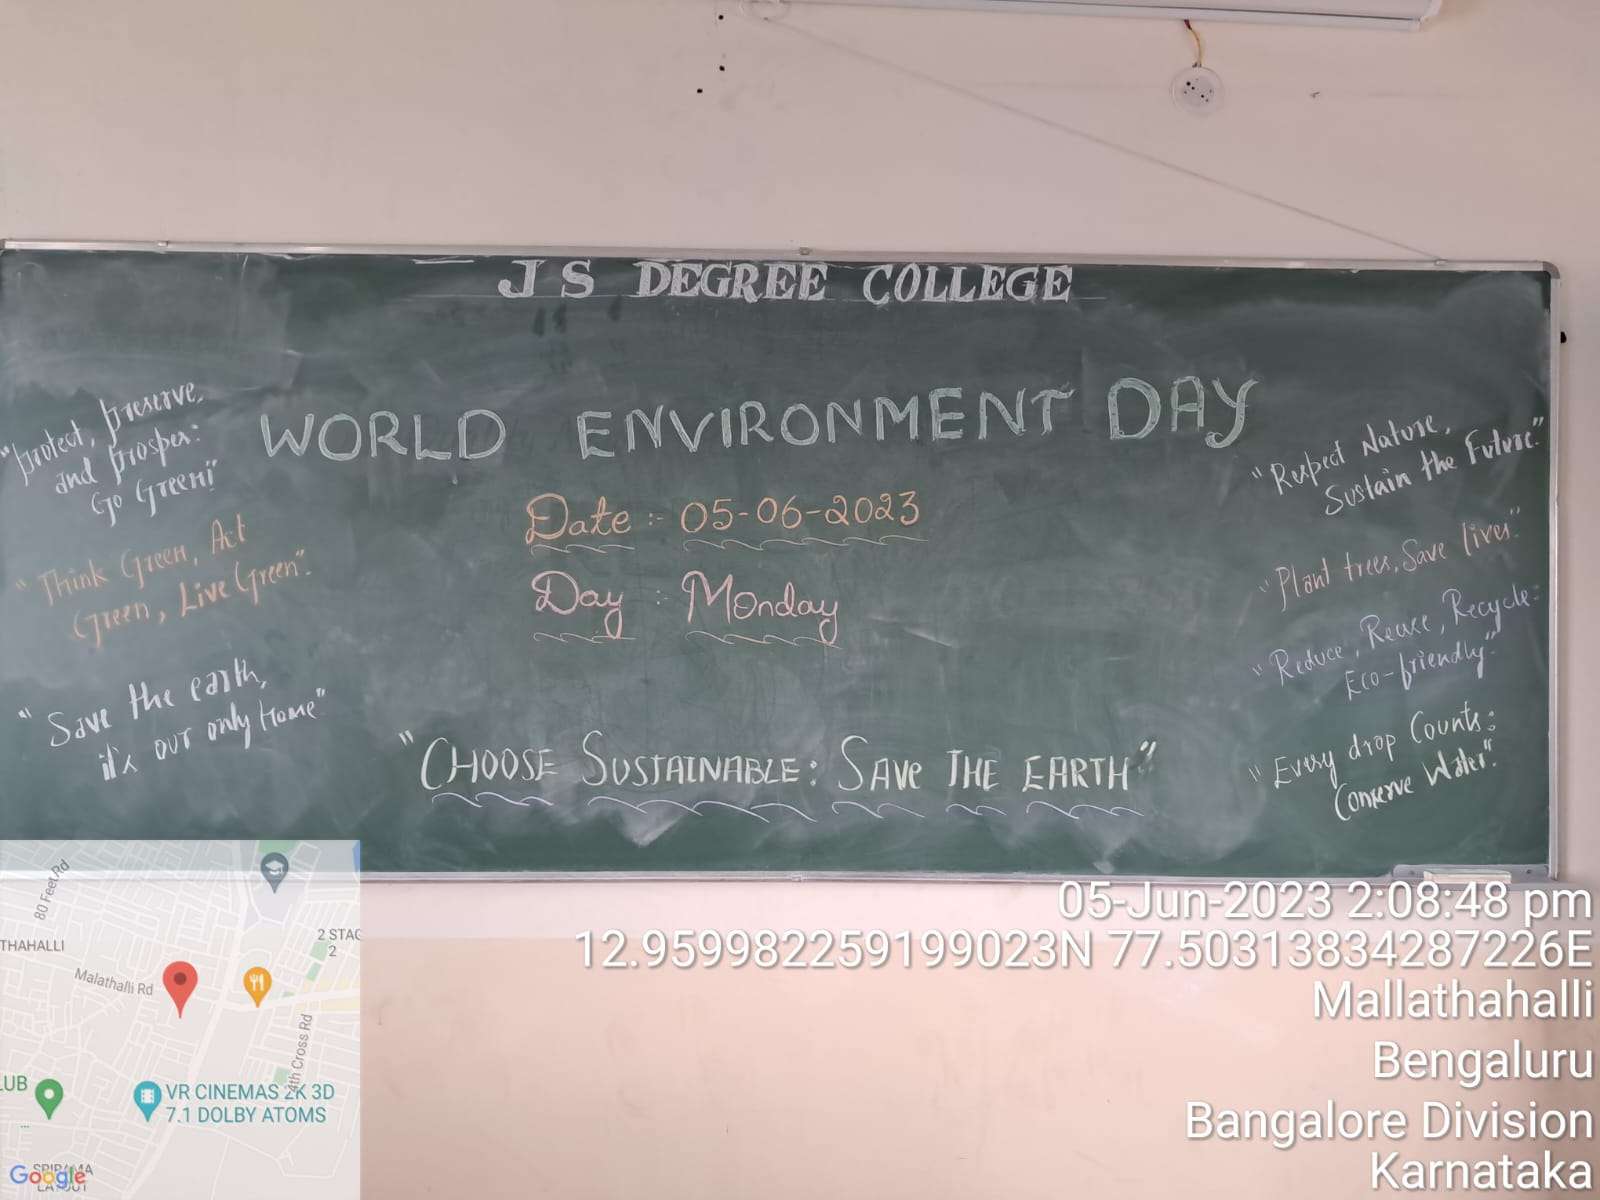 J S DEGREE COLLEGE
WORLD ENVIRONMENT DAY
Date :- 05-06-2023
Day :- Monday
"protect, preserve,
and prosper:
Go Green!"
"Think Green, Act
Green, Live Green".
"Save the earth,
it's our only Home"
"CHOOSE SUSTAINABLE: SAVE THE EARTH"
"Respect Nature,
Sustain the Future."
"Plant trees, Save lives."
"Reduce, Reuse, Recycle:
Eco-friendly"
"Every drop Counts:
Conserve Water".
05-Jun-2023 2:08:48 pm
12.959982259199023N 77.50313834287226E
Mallathahalli
Bengaluru
Bangalore Division
Karnataka
80 Feet Rd
THAHALLI
2 STAG
2
Malathalli Rd
4th Cross Rd
LUB
VR CINEMAS 2K 3D
7.1 DOLBY ATOMS
Google